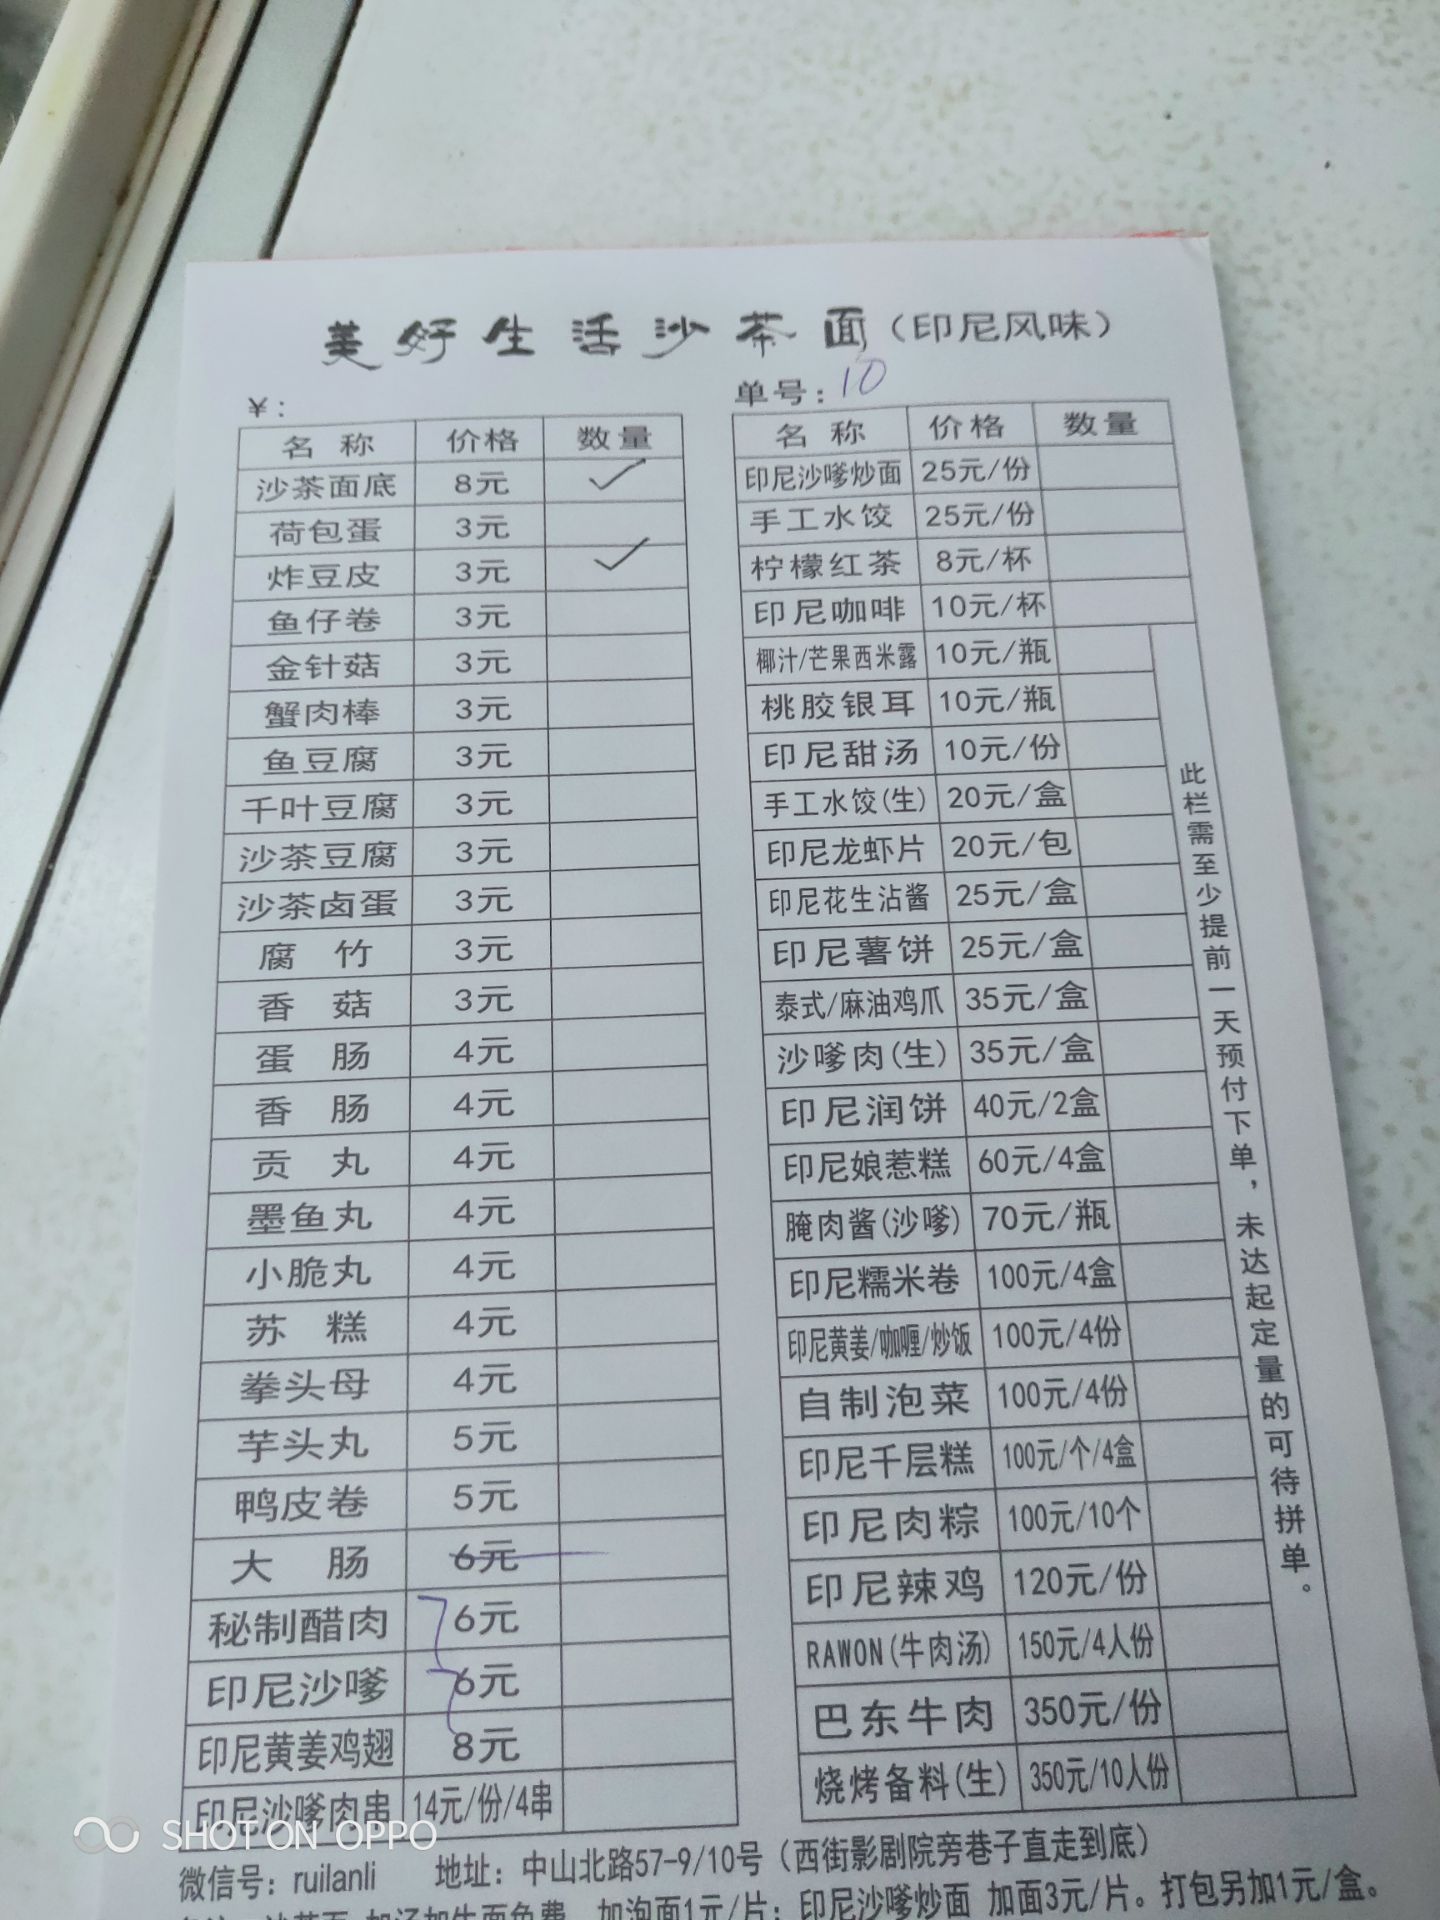 美好生活沙茶面（印尼风味）
¥：
单号：10
名称 价格 数量
沙茶面底 8元 ✓
荷包蛋 3元
炸豆皮 3元 ✓
鱼仔卷 3元
金针菇 3元
蟹肉棒 3元
鱼豆腐 3元
千叶豆腐 3元
沙茶豆腐 3元
沙茶卤蛋 3元
腐竹 3元
香菇 3元
蛋肠 4元
香肠 4元
贡丸 4元
墨鱼丸 4元
小脆丸 4元
苏糕 4元
拳头母 4元
芋头丸 5元
鸭皮卷 5元
大肠 6元
秘制醋肉 6元
印尼沙嗲 6元
印尼黄姜鸡翅 8元
印尼沙嗲肉串 14元/份/4串
名称 价格 数量
印尼沙嗲炒面 25元/份
手工水饺 25元/份
柠檬红茶 8元/杯
印尼咖啡 10元/杯
椰汁/芒果西米露 10元/瓶
桃胶银耳 10元/瓶
印尼甜汤 10元/份
手工水饺(生) 20元/盒
印尼龙虾片 20元/包
印尼花生沾酱 25元/盒
印尼薯饼 25元/盒
泰式/麻油鸡爪 35元/盒
沙嗲肉(生) 35元/盒
印尼润饼 40元/2盒
印尼娘惹糕 60元/4盒
腌肉酱(沙嗲) 70元/瓶
印尼糯米卷 100元/4盒
印尼黄姜/咖喱/炒饭 100元/4份
自制泡菜 100元/4份
印尼千层糕 100元/个/4盒
印尼肉粽 100元/10个
印尼辣鸡 120元/份
RAWON(牛肉汤) 150元/4人份
巴东牛肉 350元/份
烧烤备料(生) 350元/10人份
此栏需至少提前一天预付下单，未达起定量的可待拼单。
微信号：ruilanli 地址：中山北路57-9/10号（西街影剧院旁巷子直走到底）
沙茶面 加汤加生面免费 加泡面1元/片；印尼沙嗲炒面 加面3元/片。打包另加1元/盒。
SHOT ON OPPO